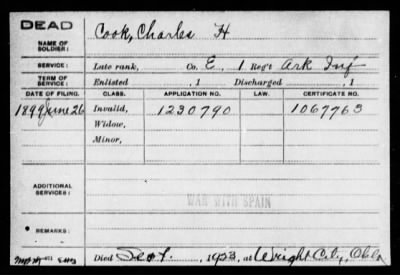 DEAD
NAME OF SOLDIER: Cook, Charles H
SERVICE: Late rank, Co. E, 1 Reg't Ark Inf
TERM OF SERVICE: Enlisted , 1 Discharged , 1
DATE OF FILING. CLASS. APPLICATION NO. LAW. CERTIFICATE NO.
1899 June 26 Invalid, 1230790 1067763
Widow,
Minor,
ADDITIONAL SERVICES:
WAR WITH SPAIN
REMARKS:
Died Sept. , 1923, at Wright City, Okla